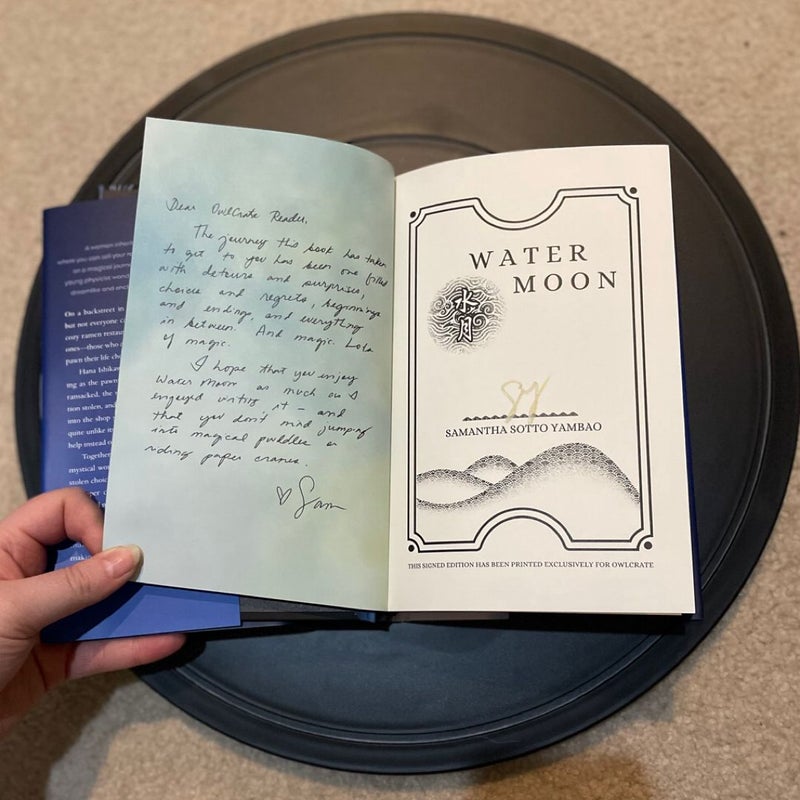 A woman inherits
where you can sell your
on a magical journ
young physicist wand
dreamlike and ench
On a backstreet in
but not everyone c
cozy ramen restau
ones—those who a
pawn their life cho
Hana Ishika
ing as the pawn
ransacked, the
tion stolen, and
into the shop
quite unlike it
help instead o
Together
mystical wor
stolen choic
per c
makin
Dear OwlCrate Reader,
The journey this book has taken
to get to you has been one filled
with detours and surprises,
choices and regrets, beginnings
and endings, and everything
in between. And magic. Lots
of magic.
I hope that you enjoy
Water Moon as much as I
enjoyed writing it – and
that you don't mind jumping
into magical puddles or
riding paper cranes.
♡ Sam
WATER
MOON
水月
SY
SAMANTHA SOTTO YAMBAO
THIS SIGNED EDITION HAS BEEN PRINTED EXCLUSIVELY FOR OWLCRATE